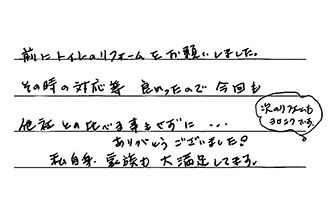 前にトイレのリフォームをお願いしました。
その時の対応等 良かったので 今回も
他社との比べる事もせずに・・・
ありがとうございました!
私自身、家族も 大満足してます。
次のリフォームも
ヨロシクです。